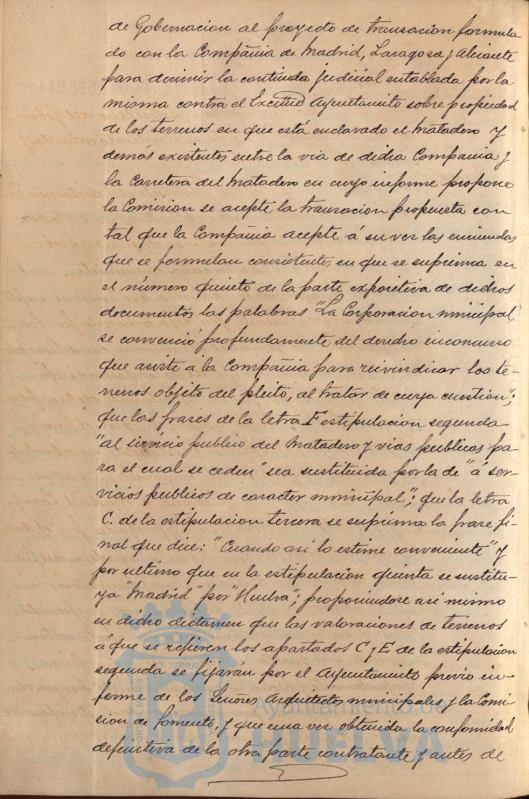 de Gobernacion al proyecto de transacion formula
do con la Compañia de Madrid, Zaragoza y Alicante
para dirimir la contienda judicial entablada por la
misma contra el Excmo Ayuntamiento sobre propiedad
de los terrenos en que está enclavado el Matadero y
demás existentes entre la via de dicha Compañia y
la Carretera del Matadero en cuyo informe propone
la Comision se acepte la transacion propuesta con
tal que la Compañia acepte á su vez las enmiendas
que se formulan consistentes en que se suprima en
el número quinto de la parte expositiva de dichos
documentos las palabras "La Corporacion municipal
se convenció profundamente del derecho inconcuso
que asiste a la Compañia para reivindicar los te-
rrenos objeto del pleito, al tratar de cuya cuestion";
que las frases de la letra F estipulacion segunda
"al servicio publico del Matadero y vias publicas pa
ra el cual se ceden" sea sustituida por la de "á ser-
vicios publicos de caracter municipal"; que la letra
C. de la estipulacion tercera se suprima la frase fi-
nal que dice: "Cuando asi lo estime conveniente" y
por ultimo que en la estipulación quinta se sustitu-
ya "Madrid" por "Huelva"; proponiendose asi mismo
en dicho dictamen que las valoraciones de terrenos
á que se refieren los apartados C y E de la estipulacion
segunda se fijarán por el Ayuntamiento previo in-
forme de los Señores Arquitectos municipales y la Comi
sion de Fomento, y que una vez obtenida la conformidad
definitiva de la otra parte contratante y antes de
Ayuntamiento de
HUELVA